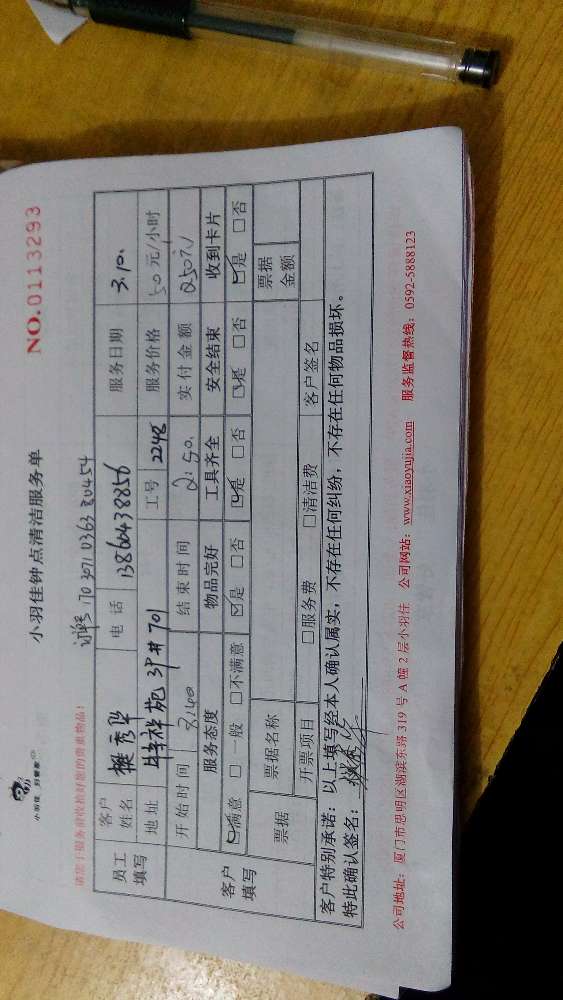 小羽佳 好管家
小羽佳钟点清洁服务单
NO.0113293
请您于服务前收拾好您的贵重物品!
员工填写
客户姓名
秀华
电话
13860438856
服务日期
3.10.
地址
祥苑 3P# 701
工号
2248
服务价格
50元/小时
开始时间
结束时间
实付金额
250元
客户填写
服务态度
物品完好
工具齐全
安全结束
收到卡片
☑满意 □一般 □不满意
☑是 □否
☑是 □否
☑是 □否
☑是 □否
票据
票据名称
票据金额
开票项目
□服务费 □清洁费
客户签名
客户特别承诺: 以上填写经本人确认属实,不存在任何纠纷,不存在任何物品损坏。
特此确认签名:
公司地址: 厦门市思明区湖滨东路319号A幢2层小羽佳 公司网站: www.xiaoyujia.com 服务监督热线: 0592-5888123